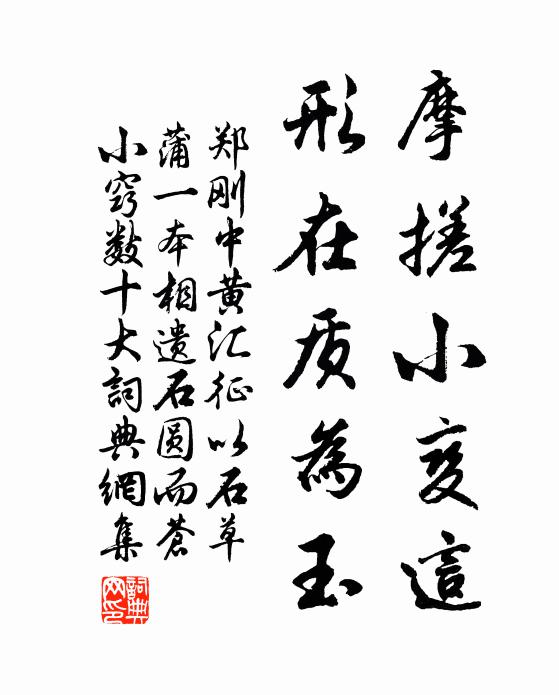 摩搓小变這
形在质為玉
郑刚中黄汇征以石草
蒲一本相遗石圆而苍
小窍数十大詞典網集
詞典網印